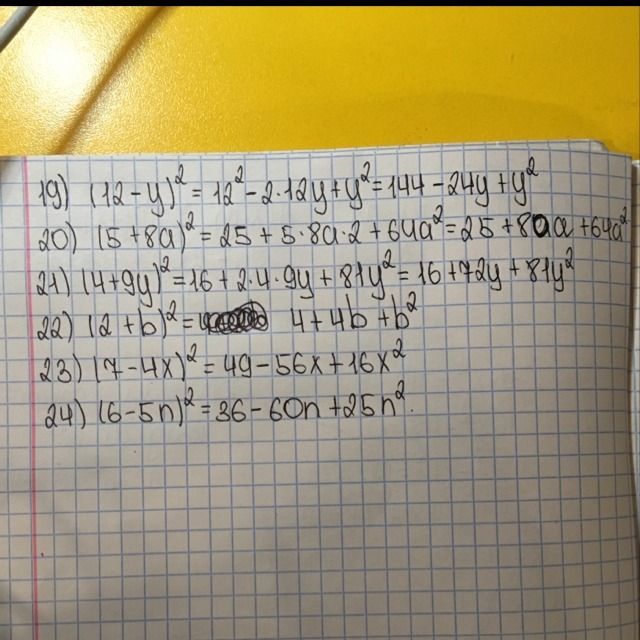 19) (12-y)² = 12² - 2·12y + y² = 144 - 24y + y²
20) (5+8a)² = 25 + 5·8a·2 + 64a² = 25 + 80a + 64a²
21) (4+9y)² = 16 + 2·4·9y + 81y² = 16 + 72y + 81y²
22) (2+b)² = 4 + 4b + b²
23) (7-4x)² = 49 - 56x + 16x²
24) (6-5n)² = 36 - 60n + 25n².